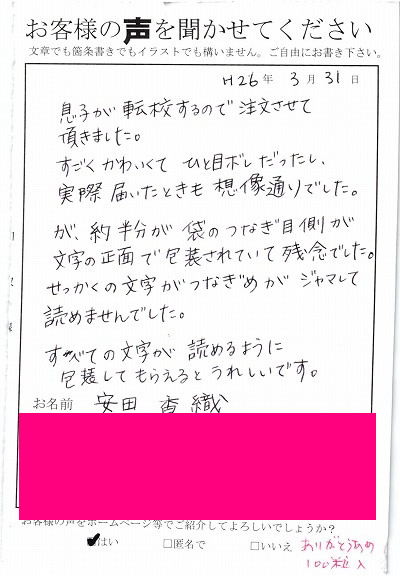 お客様の声を聞かせてください
文章でも箇条書きでもイラストでも構いません。ご自由にお書き下さい。
H26年 3月 31日
息子が転校するので注文させて
頂きました。
すごくかわいくて ひと目ボレだったし、
実際届いたときも想像通りでした。
が、約半分が袋のつなぎ目側が
文字の正面で包装されていて残念でした。
せっかくの文字がつなぎめがジャマして
読めませんでした。
すべての文字が読めるように
包装してもらえるとうれしいです。
お名前 安田 香織
お客様の声をホームページ等でご紹介してよろしいでしょうか?
はい □匿名で □いいえ
ありがとうあめ
100粒入